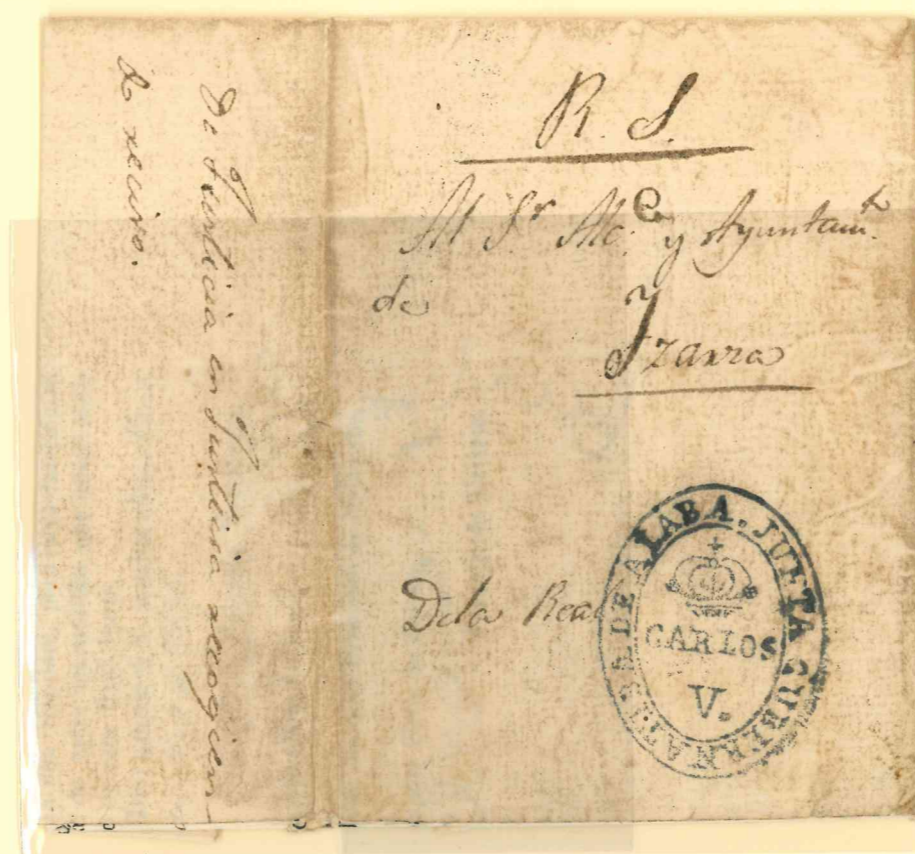 R. S.
Al Sr. Alc.e y Ayuntam.to
de
Izarra
De la Real
JUNTA GUBERNATIBA DE ALABA.
CARLOS
V.
De Justicia en Justicia recogien
do recivo.